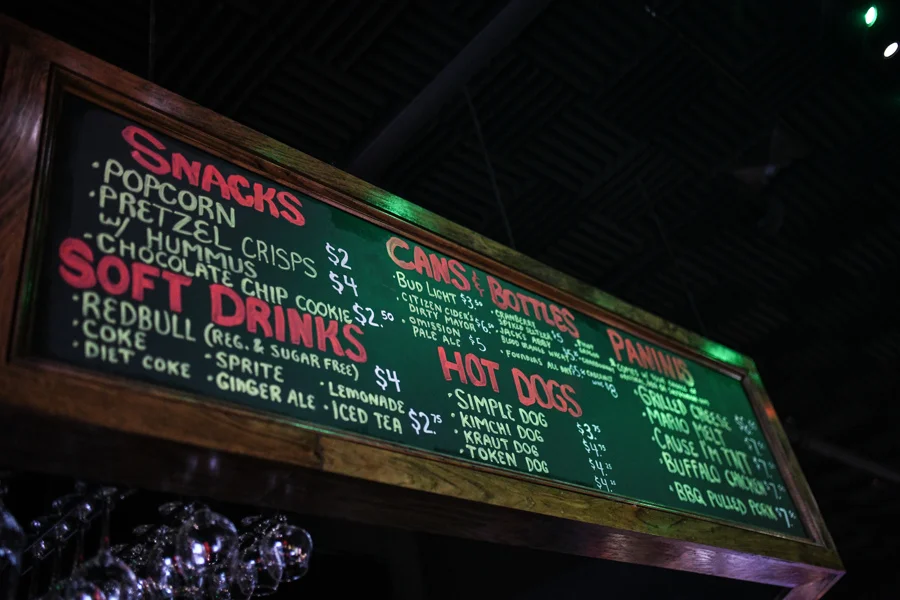 SNACKS
·POPCORN $2
·PRETZEL CRISPS
w/ HUMMUS $4
·CHOCOLATE CHIP COOKIE $2.50
SOFT DRINKS
·REDBULL (REG. & SUGAR FREE) $4
·COKE ·SPRITE ·LEMONADE
·DIET COKE ·GINGER ALE ·ICED TEA $2.75
CANS & BOTTLES
·BUD LIGHT $3.50
·CITIZEN CIDER'S
DIRTY MAYOR $6
·OMISSION
PALE ALE $5
·CRANBERRY
SPIKED SELTZER $5
·JACK'S ABBY
BLOOD ORANGE WHEAT
·FOUNDERS ALL DAY
HOT DOGS
·SIMPLE DOG $3.75
·KIMCHI DOG $4.75
·KRAUT DOG $4.
·TOKEN DOG $4.
PANINIS
·GRILLED CHEESE
·MARIO MELT
·'CAUSE I'M TNT
·BUFFALO CHICKEN
·BBQ PULLED PORK